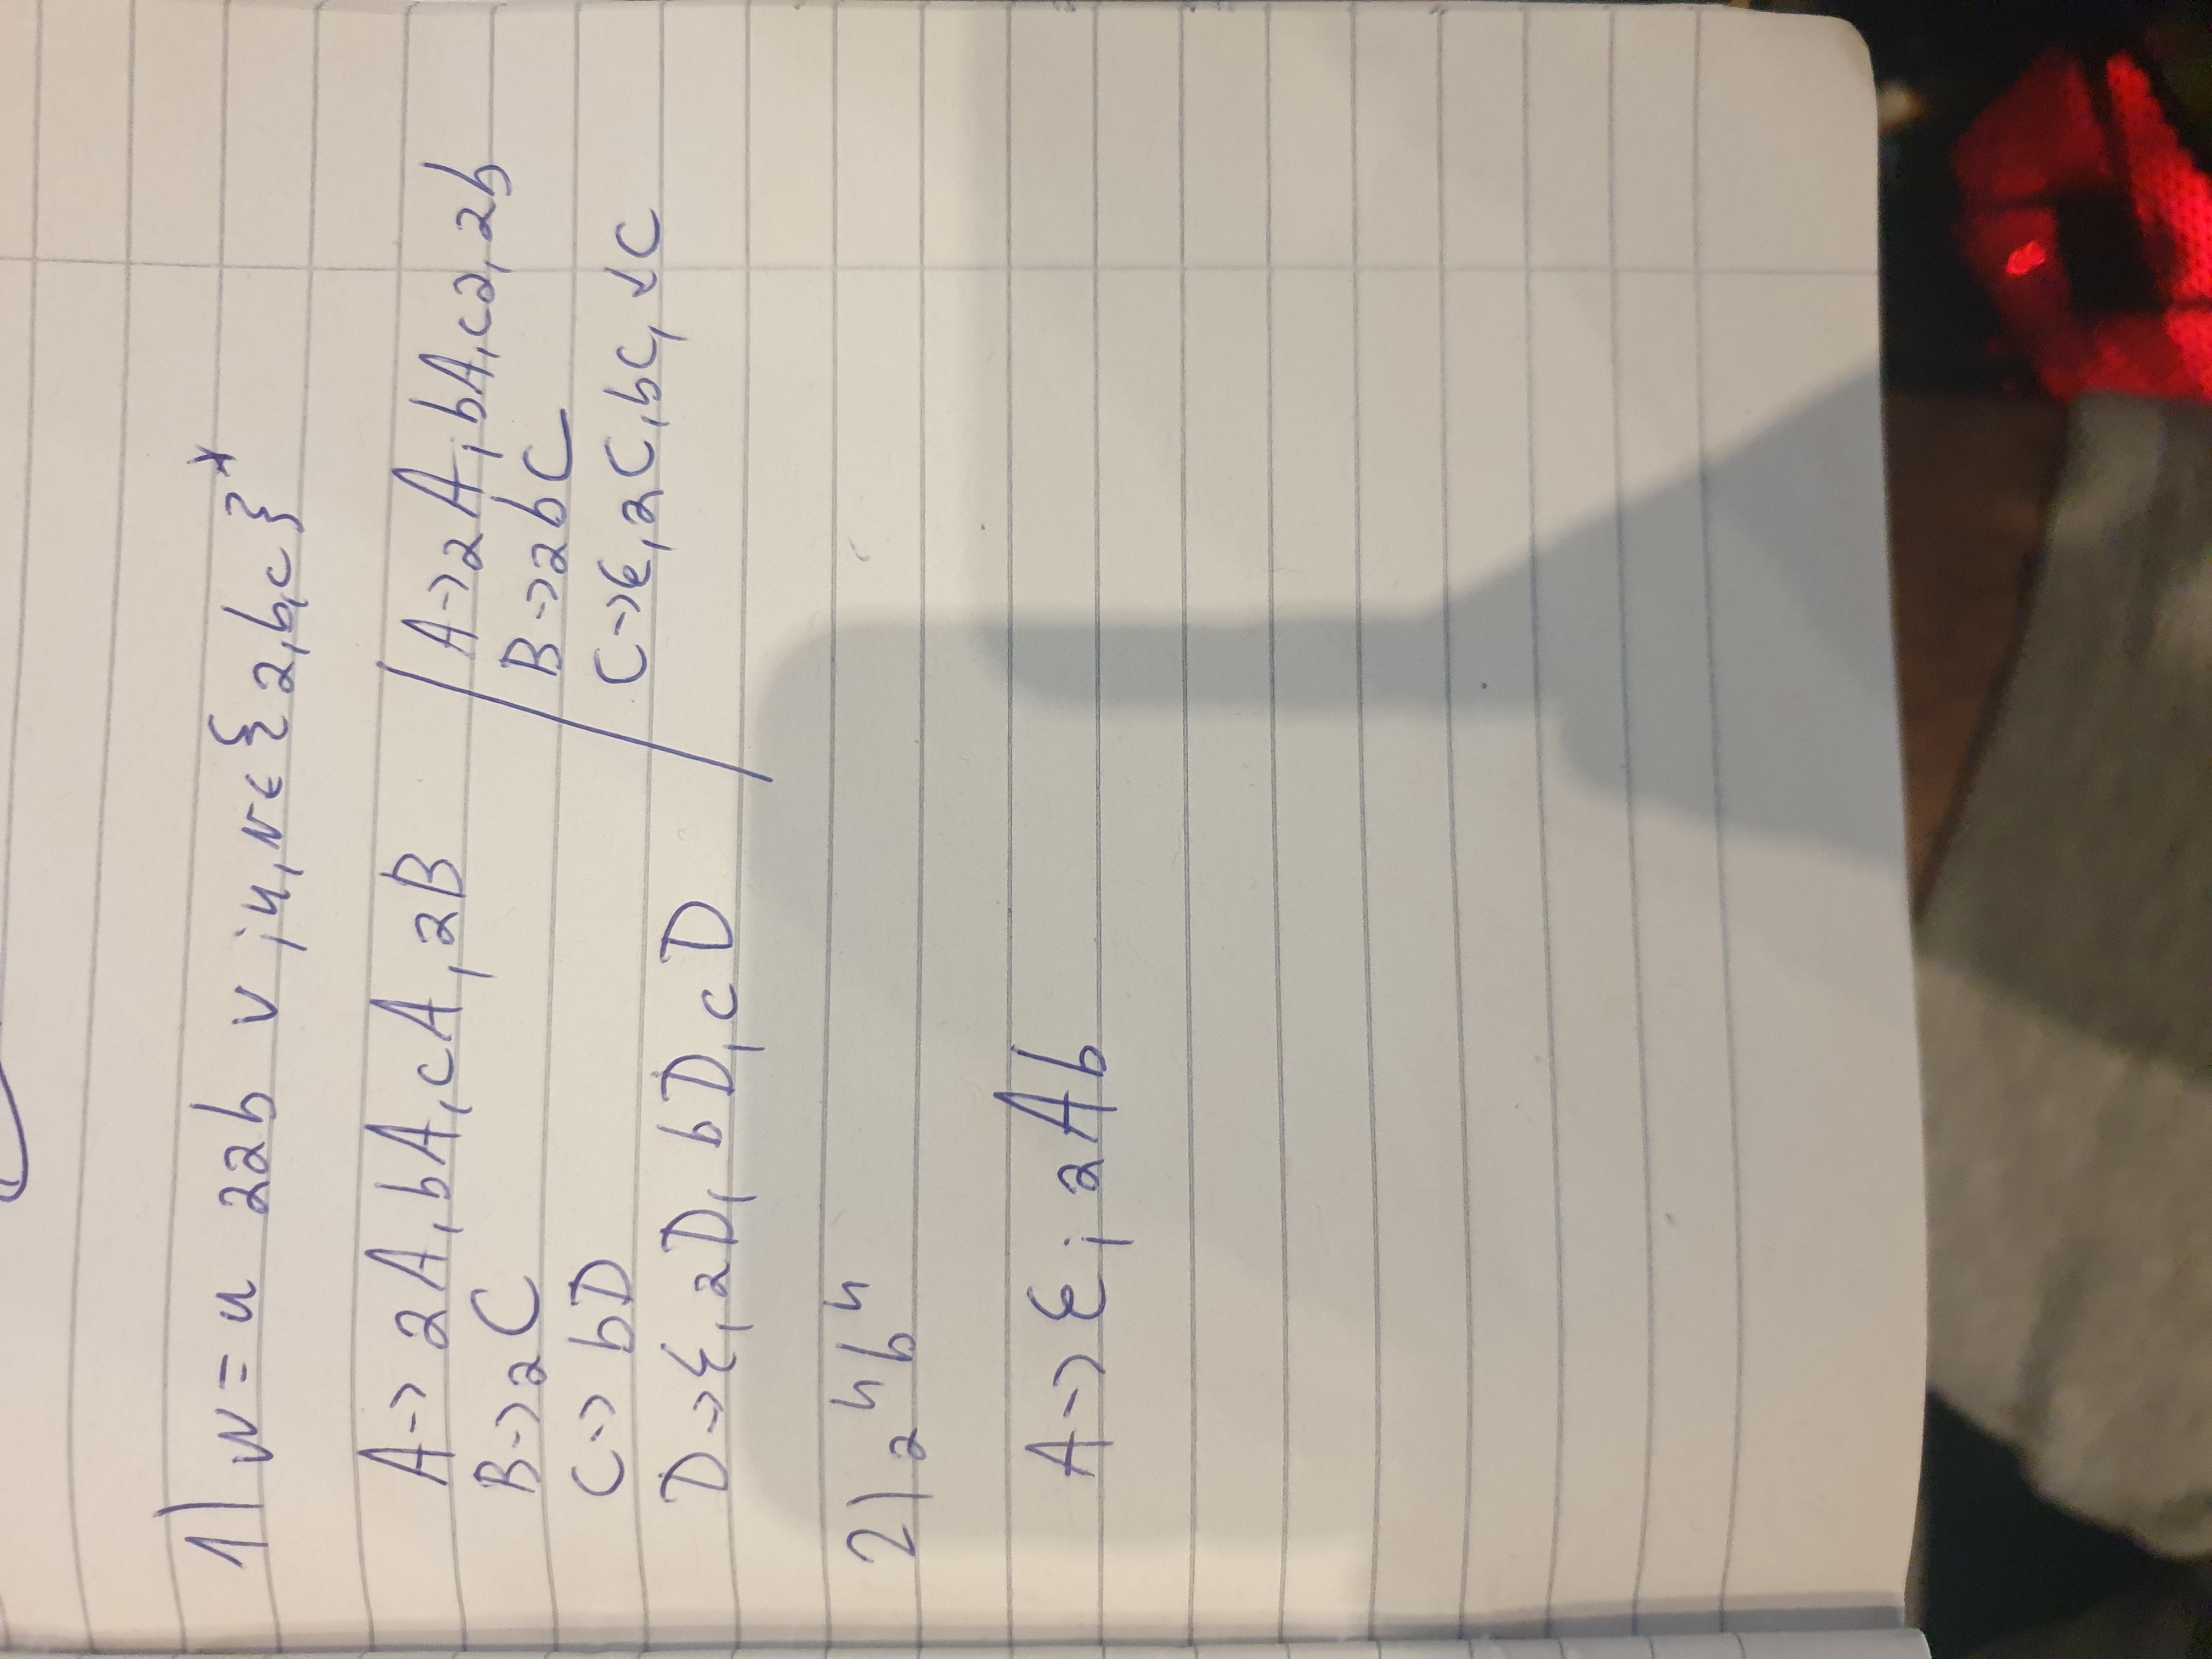 1) w = u aab v ; u, v ∈ {a,b,c}*
A -> aA, bA, cA, aB
B -> aC
C -> bD
D -> ε, aD, bD, cD
A -> aA, bA, ca, ab
B -> abC
C -> ε, aC, bC, C
2) a^n b^n
A -> ε ; aAb